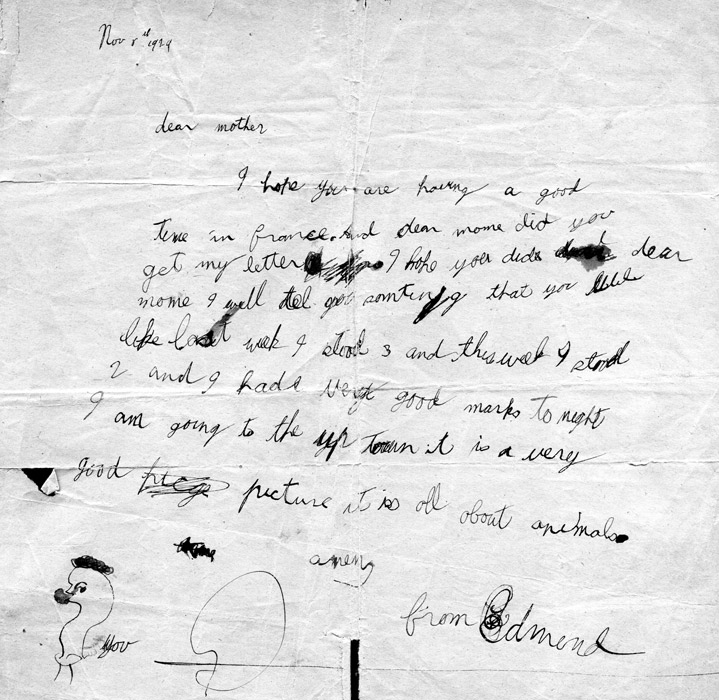 Nov 8th 1929
dear mother
I hope you are having a good
time in france. And dear mome did you
get my letter I hope you dide dear
mome I will tel you somting that you
like last week I stood 3 and this week I stood
2 and I hade very good marks to night
I am going to the up Town it is a very
good picture it is all about animals
from Edmond
you